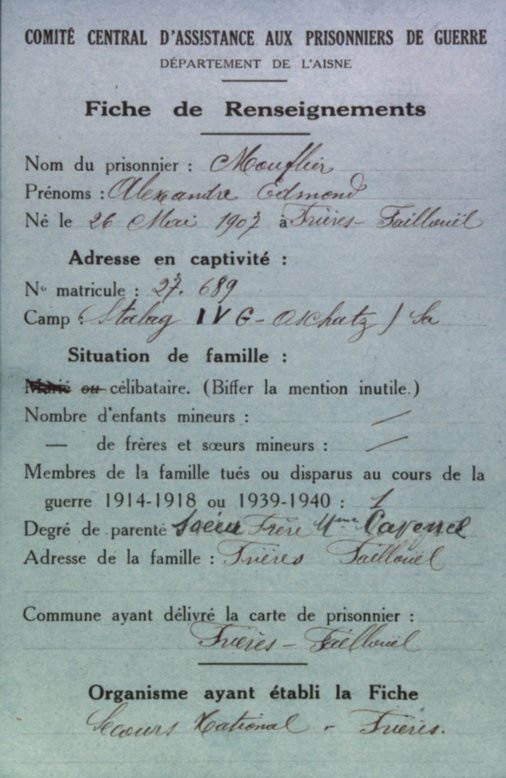 COMITÉ CENTRAL D'ASSISTANCE AUX PRISONNIERS DE GUERRE
DÉPARTEMENT DE L'AISNE
Fiche de Renseignements
Nom du prisonnier : Mouflier
Prénoms : Alexandre Edmond
Né le 26 Mai 1907 à Frières-Faillouël
Adresse en captivité :
No matricule : 27.689
Camp : Stalag IV G - Oschatz / Sa
Situation de famille :
Marié ou célibataire. (Biffer la mention inutile.)
Nombre d'enfants mineurs : /
— de frères et sœurs mineurs : /
Membres de la famille tués ou disparus au cours de la
guerre 1914-1918 ou 1939-1940 : 1
Degré de parenté Soeur Frère Mme
Adresse de la famille : Frières Faillouel
Commune ayant délivré la carte de prisonnier :
Frières - Faillouel
Organisme ayant établi la Fiche
Secours National - Frières.